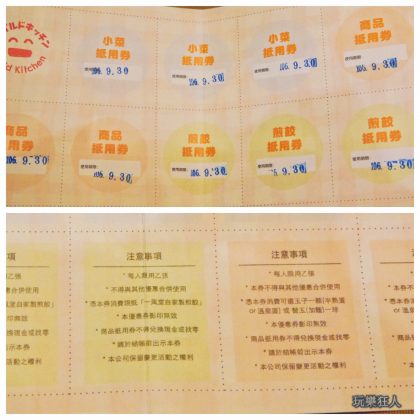 イルドキッチン
d Kitchen
小菜
抵用券
使用期限:
106. 9. 30
小菜
抵用券
使用期限:
106. 9. 30
小菜
抵用券
使用期限:
106. 9. 30
商品
抵用券
使用期限:
106. 9. 30
商品
抵用券
使用期限:
106. 9. 30
商品
抵用券
使用期限:
106. 9. 30
煎餃
抵用券
使用期限:
106. 9. 30
煎餃
抵用券
使用期限:
106. 9. 30
煎餃
抵用券
使用期限:
106. 9. 30
項
乙張
合併使用
風堂自家製煎餃」
印無效
換現金或找零
示本券
動之權利
注意事項
*每人限用乙張
*不得與其他優惠合併使用
*憑本券消費現抵「一風堂自家製煎餃」
*本優惠券影印無效
*商品抵用券不得兌換現金或找零
*請於結帳前出示本券
*本公司保留變更活動之權利
注意事項
*每人限用乙張
*本券不得與其他優惠合併使用
*憑本券消費可選玉子一顆(半熟蛋
or 溫泉蛋) 或 替玉(加麵)一球
*本優惠券影印無效
*商品抵用券不得兌換現金或找零
*請於結帳前出示本券
*本公司保留變更活動之權利
*本券不
*憑本券
or 溫
*
*商品抵
*本公司
玩樂狂人